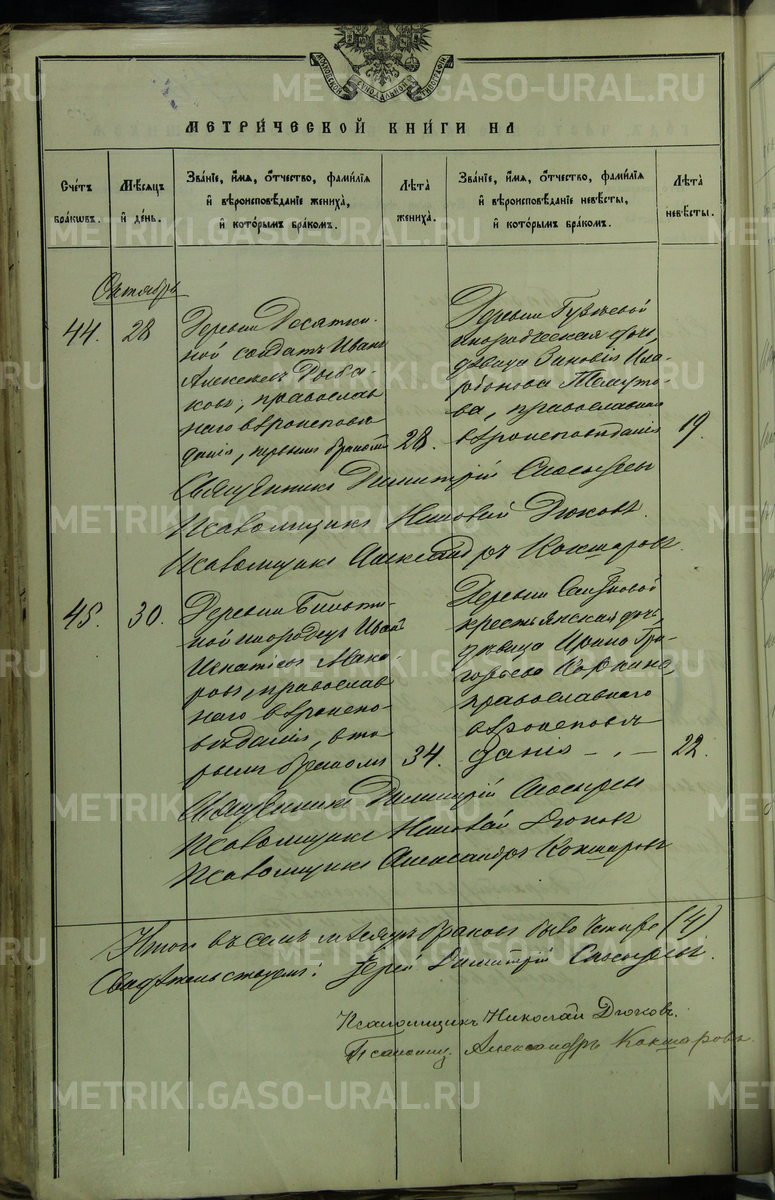 МОСКОВСКОЙ СѴНОДАЛЬНОЙ ТИПОГРАФІИ
МЕТРИ́ЧЕСКОЙ КНИ́ГИ НА
Сче́тъ бра́ковъ.
Мѣ́сяцъ и҆ де́нь.
Зва́нїе, и҆́мя, ѻ҆́тчество, фами́лїя и҆ вѣроисповѣ́данїе жениха̀, и҆ кото́рымъ бра́комъ.
Лѣ́та жениха̀.
Зва́нїе, и҆́мя, ѻ҆́тчество, фами́лїя и҆ вѣроисповѣ́данїе невѣ́сты, и҆ кото́рымъ бра́комъ.
Лѣ́та невѣ́сты.
Октябрь
44.
28
Деревни Десятки-
ной солдатъ Иванъ
Алексѣевъ Рыба-
ковъ, православ
наго вѣроисповѣ
данія, первымъ бракомъ
28.
Деревни
инородческая дочь,
дѣвица Зиновія
православнаго
вѣроисповѣданія
19.
Священникъ Димитрій
Псаломщикъ Николай Дюковъ.
Псаломщикъ Александръ Кокшаровъ.
45.
30.
Деревни
ной инородецъ Иванъ
Игнатіевъ Мака-
ровъ, православ
наго вѣроиспо-
вѣданія, вто
рымъ бракомъ
34.
Деревни
крестьянская дочь,
дѣвица Ирина Гри-
горьева
православнаго
вѣроисповѣ
данія — „ —
22.
Священникъ Димитрій
Псаломщикъ Николай Дюковъ
Псаломщикъ Александръ Кокшаровъ
Итого въ семъ мѣсяцѣ браковъ было четыре (4)
Свидѣтельствуемъ: Іерей Димитрій
Псаломщикъ Николай Дюковъ.
Псаломщ. Александръ Кокшаровъ.
METRIKI.GASO-URAL.RU